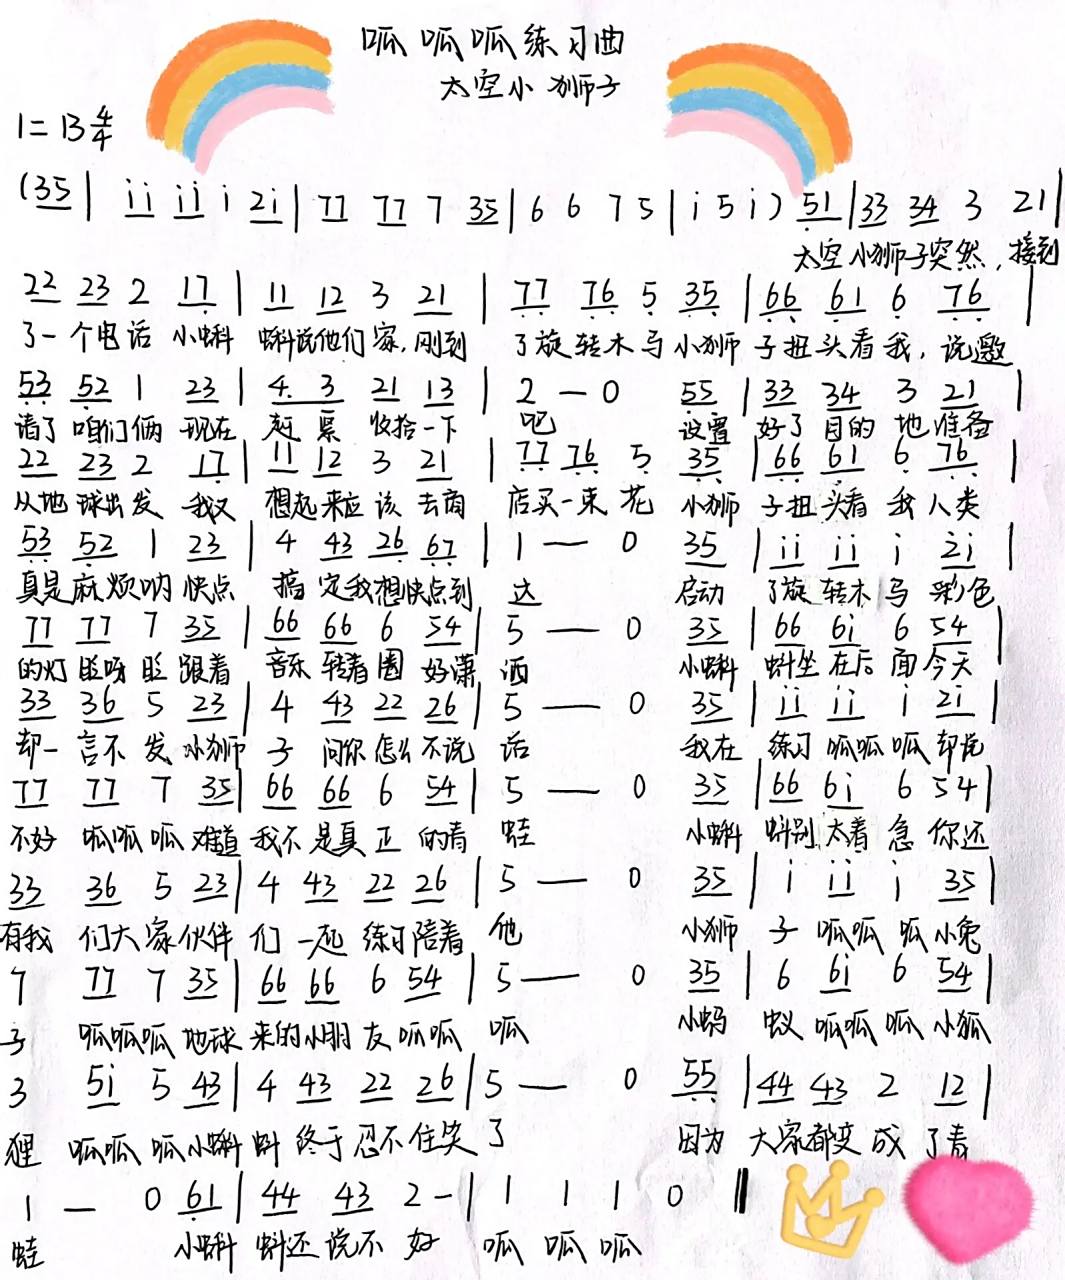 呱呱呱练习曲
太空小狮子
1=B 4/4
(35| i̇i̇ i̇i̇ i̇ 2̇i̇| 77 77 7 35| 6 6 7 5 | i̇ 5 i̇ ) 5̣1 |33 34 3 21|
太空 小狮子突然, 接到
22 23 2 17̣ | 11 12 3 21 | 7̣7̣ 7̣6̣ 5̣ 3̣5̣ | 6̣6̣ 6̣1 6̣ 7̣6̣ |
了一个电话 小蝌 蝌说他们家, 刚到 了旋转木马 小狮 子扭头看我, 说邀
5̣3̣ 5̣2̣ 1 23 | 4. 3 21 13 | 2 — 0 5̣5̣ | 33 34 3 21 |
请了 咱们俩 现在 赶 紧 收拾一下 吧 设置 好了 目的 地准备
22 23 2 17̣ | 11 12 3 21 | 7̣7̣ 7̣6̣ 5̣ 3̣5̣ | 6̣6̣ 6̣1 6̣ 7̣6̣ |
从地 球出发 我又 想起来应该去商 店买一束花 小狮 子扭头看 我人类
5̣3̣ 5̣2̣ 1 23 | 4 43 26̣ 6̣7̣ | 1 — 0 35 | i̇i̇ i̇i̇ i̇ 2̇i̇ |
真是麻烦呐 快点 搞 定我想快点到 达 启动 了旋 转木马 彩色
77 77 7 35| 66 66 6 54 | 5 — 0 35 | 66 6i̇ 6 54 |
的灯 眨呀眨 跟着 音乐转着圈 好潇 洒 小蝌 蚪坐在后面今天
33 36 5 23 | 4 43 22 26 | 5 — 0 35 | i̇i̇ i̇i̇ i̇ 2̇i̇ |
却一言不发 小狮 子 问你怎么不说 话 我在 练习呱呱呱却说
77 77 7 35| 66 66 6 54 | 5 — 0 35 | 66 6i̇ 6 54|
不好 呱呱呱难道 我不是真正 的青 蛙 小蝌 蚪别太着急 你还
33 36 5 23| 4 43 22 26 | 5 — 0 35 | i̇ i̇i̇ i̇ 35 |
有我 们大家伙伴 们一起 练习陪着 他 小狮 子 呱呱 呱小兔
7 77 7 35 | 66 66 6 54| 5 — 0 35 | 6 6i̇ 6 54|
子 呱呱呱 地球 来的小朋友呱呱 呱 小蚂 蚁 呱呱呱 小狐
3 5i̇ 5 43| 4 43 22 26| 5 — 0 5̣5̣ | 44 43 2 12 |
狸 呱呱 呱小蝌 蚪 终于忍不住笑了 因为 大家都变成了青
1 — 0 6̣1 | 44 43 2 - | 1 1 1 0 ‖
蛙 小蝌 蚪还说不好 呱 呱 呱